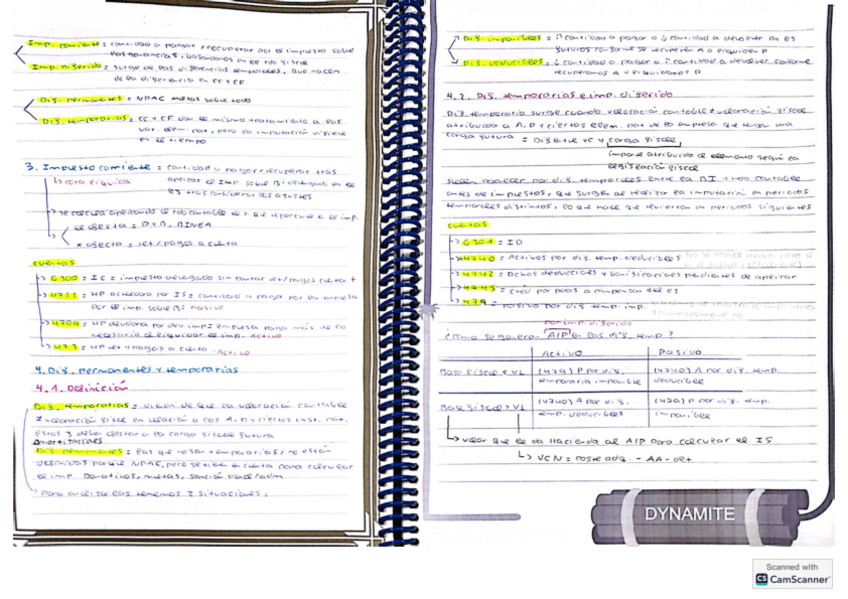 Imp. corriente = cantidad a pagar / recuperar por el impuesto sobre
las ganancias, basándonos en el rdo fiscal
Imp. diferido = surge de las diferencias temporales, que nacen
de la diferencia en CC ≠ CF
Dif. permanentes = NPAC multas sobre todo
Dif. temporarias = CC ≠ CF dan el mismo tratamiento a las
en el tiempo
3. Impuesto corriente = cantidad a pagar / recuperar tras
aplicar el Imp. sobre Bº
cuota líquida
en el
ES tras considerar los ajustes
se calcula aplicando
el imp.
no afecta = ret / pagos a cuenta
cuentas
6300 = IC = impuesto devengado sin contar ret/pagos cuenta
4752 = HP acreedora por IS = cantidad a pagar por la empresa
por el imp. sobre Bº. Pasivo
4709 = HP deudora por dev. imp = empresa paga más de lo
necesario al liquidar el imp. - Activo
473 = HP ret y pagos a cuenta - Activo
4. Dif. permanentes y temporarias
4.1. Definición
Dif. temporarias = vienen de que la valoración contable
≠ valoración fiscal en relación a los A, P y ciertos inst. pat.
Estos deben afectar a la carga fiscal futura
Amortizaciones
Dif. permanentes = las que no son temporarias / no están
definidas porque NPAC, pero se tiene en cuenta para calcular
el imp. Donativos, multas, sanción
Para analizar las tenemos 2 situaciones:
Dif. imponibles = ↑ cantidad a pagar o ↓ cantidad a devolver en ES
futuros conforme se recuperen A o liquiden P
Dif. deducibles = ↓ cantidad a pagar o ↑ cantidad a devolver conforme
recuperamos A y liquidamos P
4.2. Dif. temporarias e imp. diferido
Dif temporaria surge cuando valoración contable ≠ valoración fiscal
atribuida a A, P y ciertos elem. pat de la empresa que tengan una
carga futura = Dif entre VC y carga fiscal
importe atribuido al elemento según la
legislación fiscal
Suelen aparecer por dif. temporales entre la BI y rdo contable
antes de impuestos, que surgen al realizar la imputación en periodos
temporales distintos, lo que hace que reviertan en periodos siguientes
cuentas
6301 = ID
4740 = Activos por dif. temp. deducibles
4742 = Dchos deducciones y bonificaciones pendientes de aplicar
4745 = Créd por pdas a compensar del ES
479 = pasivo por dif. temp imp.
por imp. diferido
¿Cómo se generan A/P en las dif. temp?
Activo
Pasivo
Base Fiscal < VL
(479) P por dif.
temporaria imponible
(4740) A por dif. temp.
deducible
Base fiscal > VL
(4740) A por dif.
temp. deducibles
(479) P por dif. temp.
imponible
valor que le da Hacienda al A/P para calcular el IS
VCN = coste adq. - AA - det
DYNAMITE
Scanned with
CS CamScanner